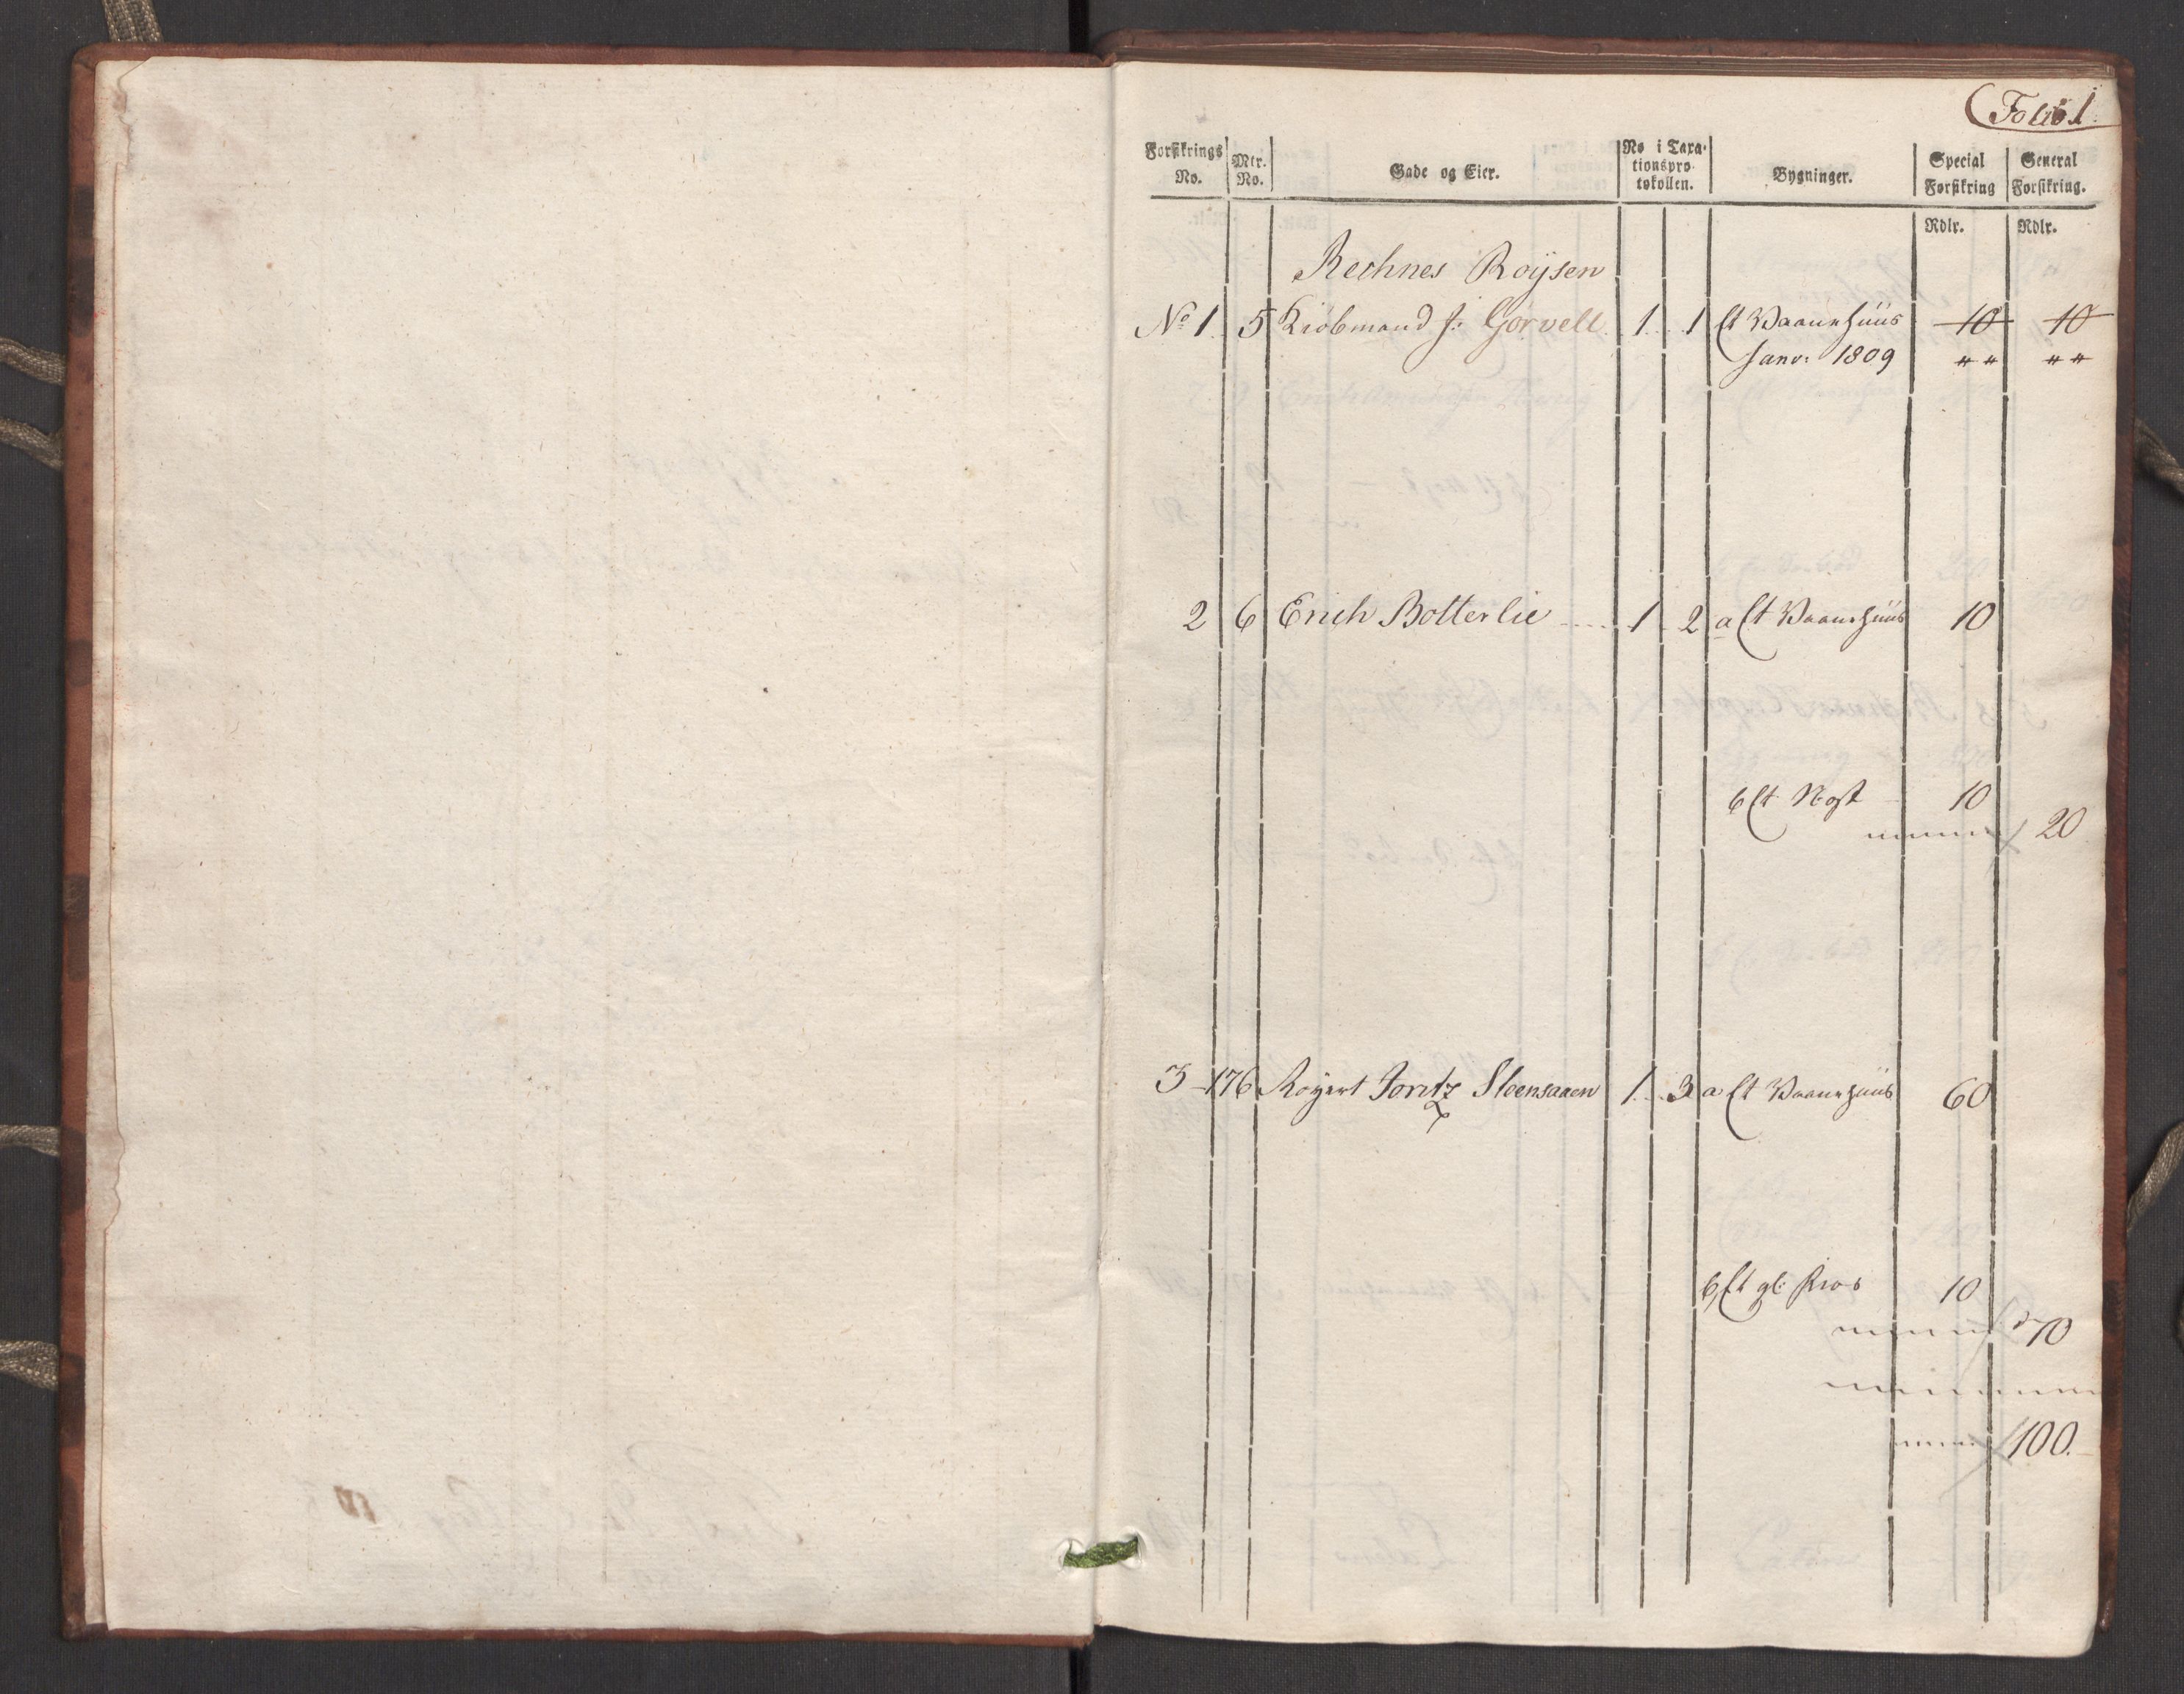 Folio 1.
Forsikrings No. Mtr. No. Gade og Eier. No i Taxationsprotokollen. Bygninger. Special Forsikring General Forsikring.
Rdlr. Rdlr.
Rechnes Roÿsen
No 1. 5 Kiöbmand J: Görvell. 1 1 Et Vaanhuus 10 10
Janv: 1809 " " " "
2 6 Erich Botterlie 1 2 a Et Vaanhuus 10
b Et Nøst 10
20
3 176 Joritz Steensaaen 1 3 a Et Vaanhuus 60
b, Et gl: 10
70
100.